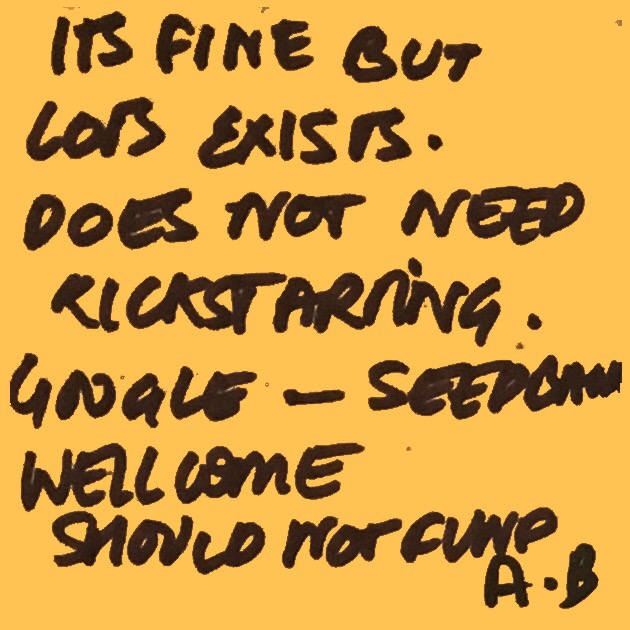 ITS FINE BUT
LOTS EXISTS.
DOES NOT NEED
KICKSTARTING.
GOOGLE — SEEDCAM
WELLCOME
SHOULD NOT FUND
A.B